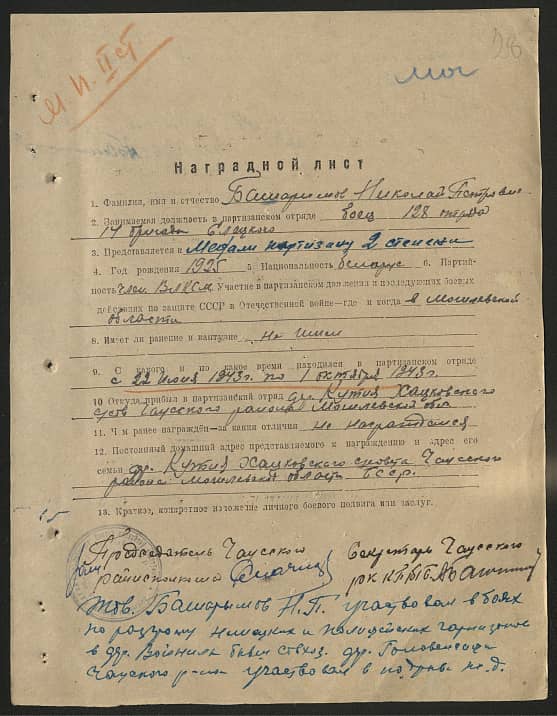 М И. II ст
мог
Наградной лист
1. Фамилия, имя и отчество Башарымов Николай Петрович
2. Занимаемая должность в партизанском отряде боец 128 отряда
14 бригады
3. Представляется к Медали партизану 2 степени
4. Год рождения 1925 5 Национальность беларус 6. Партий-
ность член ВЛКСМ. Участие в партизанском движении и последующих боевых
действиях по защите СССР в Отечественной войне—где и когда в Могилевской
области
8. Имеет ли ранение и контузию не имел
9. С какого и по какое время находился в партизанском отряде
с 22 июня 1943 г. по 1 октября 1943 г.
10 Откуда прибыл в партизанский отряд др. Кутня Хацковского
с/сов Чаусского района Могилевской обл
11. Чем ранее награждён—за какия отличия не награждался
12. Постоянный домашний адрес представляемого к награждению и адрес его
семьи др. Кутня Хацковского с/совета Чаусского
района Могилевской области БССР.
13. Краткое, конкретное изложение личного боевого подвига или заслуг.
Председатель Чаусского Секретарь Чаусского
райисполкома РК КП/б/Б
Тов. Башарымов Н.П. участвовал в боях
по разгрому немецких и полицейских гарнизонов
в др. Войнилы бывш совхоз. др. Головенчицы
Чаусского р-на участвовал в подрыве ж.д.